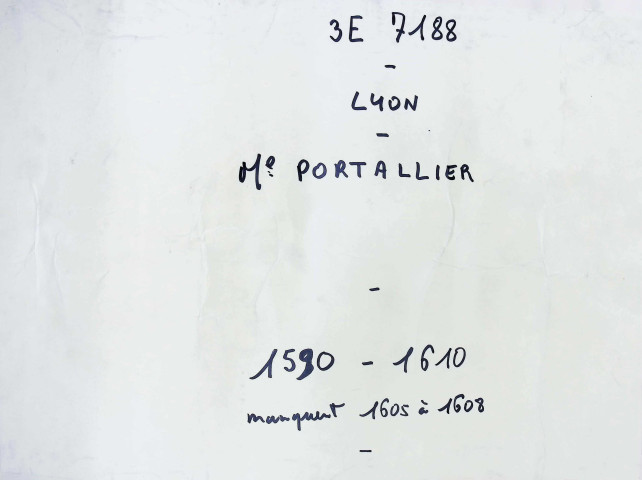 3E 7188
-
LYON
-
Me PORTALLIER
-
1590 - 1610
manquent 1605 à 1608
-